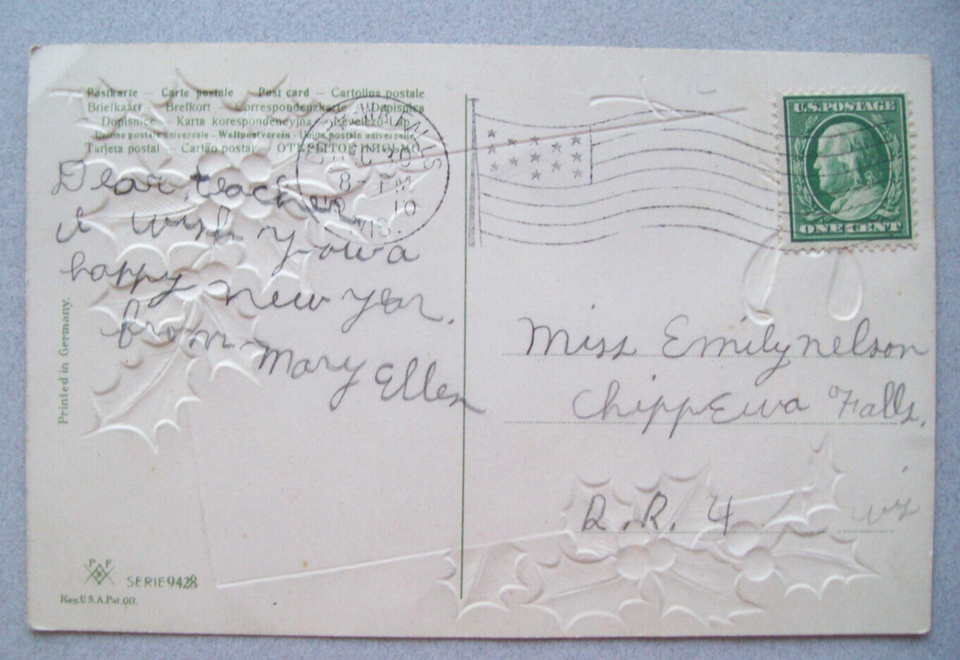 Postkarte – Carte postale – Post card – Cartolina postale
Briefkaart – Brefkort – Correspondenzkarte – Dopisnica
Dopisnice – Karta korespondencyjna – Levelező-Lap
Unione postale universale – Weltpostverein – Union postale universelle
Tarjeta postal – Cartão postal – ОТКРЫТОЕ ПИСЬМО
8 PM
10
WIS.
U.S. POSTAGE
ONE CENT
Dear teacher
I wish you a
happy new year.
from Mary Ellen
Miss Emily nelson
Chippewa Falls,
R. R. 4 Wis
Printed in Germany.
P F
B
SERIE 9428
Reg. U.S.A. Pat. Off.